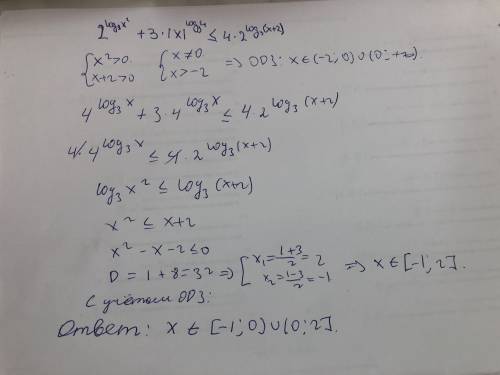 2^{log₃x²} + 3·|x|^{log₃4} ≤ 4·2^{log₃(x+2)}
{x²>0 x+2>0 {x≠0 x>-2 => ОДЗ: x∈(-2;0)∪(0;+∞).
4^{log₃x} + 3·4^{log₃x} ≤ 4·2^{log₃(x+2)}
4·4^{log₃x} ≤ 4·2^{log₃(x+2)}
log₃x² ≤ log₃(x+2)
x² ≤ x+2
x²-x-2≤0
D = 1+8=3² => [x₁=(1+3)/2=2 x₂=(1-3)/2=-1 => x∈[-1;2].
С учётом ОДЗ:
Ответ: x∈[-1;0)∪(0;2].